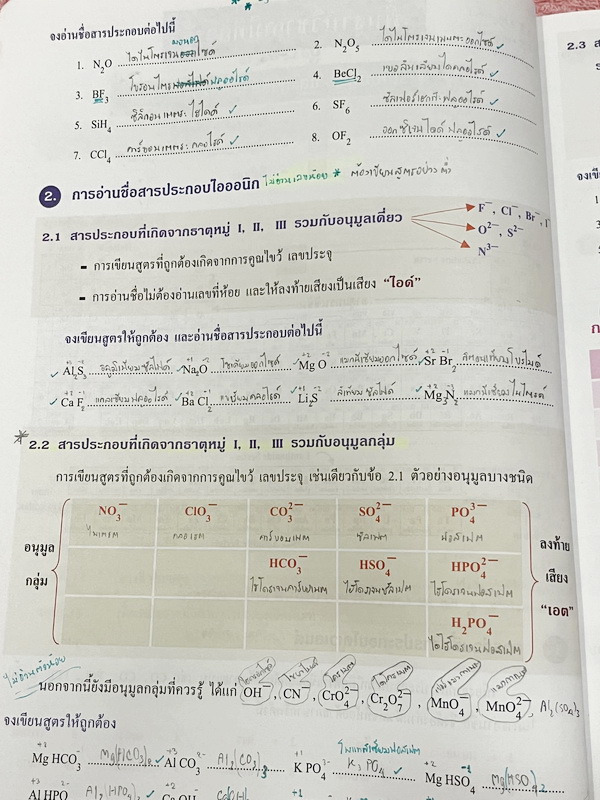 จงอ่านชื่อสารประกอบต่อไปนี้
1. N₂O ไดไนโตรเจนมอนอกไซด์
2. N₂O₅ ไดไนโตรเจนเพนตะออกไซด์ ✓
3. BF₃ โบรอนไตรฟลูออไรด์
4. BeCl₂ เบอริลเลียมไดคลอไรด์ ✓
5. SiH₄ ซิลิกอนเตตระไฮไดด์ ✓
6. SF₆ ซัลเฟอร์เฮกซะฟลูออไรด์ ✓
7. CCl₄ คาร์บอนเตตระคลอไรด์ ✓
8. OF₂ ออกซิเจนไดฟลูออไรด์ ✓
2. การอ่านชื่อสารประกอบไอออนิก ไม่อ่านเลขห้อย * ต้องเขียนสูตรอย่างต่ำ
2.1 สารประกอบที่เกิดจากธาตุหมู่ I, II, III รวมกับอนุมูลเดี่ยว
F⁻, Cl⁻, Br⁻, I
O²⁻, S²⁻
N³⁻
- การเขียนสูตรที่ถูกต้องเกิดจากการคูณไขว้ เลขประจุ
- การอ่านชื่อไม่ต้องอ่านเลขที่ห้อย และให้ลงท้ายเสียงเป็นเสียง “ไอด์”
จงเขียนสูตรให้ถูกต้อง และอ่านชื่อสารประกอบต่อไปนี้
✓ Al₂S₃ อลูมิเนียมซัลไฟด์ ✓ Na₂O โซเดียมออกไซด์ ✓ MgO แมกนีเซียมออกไซด์ ✓ SrBr₂ สตรอนเทียมโบรไมด์
✓ CaF₂ แคลเซียมฟลูออไรด์ ✓ BaCl₂ แบเรียมคลอไรด์ ✓ Li₂S ลิเทียมซัลไฟด์ ✓ Mg₃N₂ แมกนีเซียมไนไตรด์
* 2.2 สารประกอบที่เกิดจากธาตุหมู่ I, II, III รวมกับอนุมูลกลุ่ม
การเขียนสูตรที่ถูกต้องเกิดจากการคูณไขว้ เลขประจุ เช่นเดียวกับข้อ 2.1 ตัวอย่างอนุมูลบางชนิด
NO₃⁻ ClO₃⁻ CO₃²⁻ SO₄²⁻ PO₄³⁻
ไนเตรต คลอเรต คาร์บอเนต ซัลเฟต ฟอสเฟต
อนุมูลกลุ่ม
HCO₃⁻ HSO₄⁻ HPO₄²⁻
ไฮโดรเจนคาร์บอเนต ไฮโดรเจนซัลเฟต ไฮโดรเจนฟอสเฟต
H₂PO₄⁻
ไดไฮโดรเจนฟอสเฟต
ลงท้าย
เสียง
“เอต”
ไม่อ่านตัวห้อย
นอกจากนี้ยังมีอนุมูลกลุ่มที่ควรรู้ ได้แก่ OH⁻, CN⁻, CrO₄²⁻, Cr₂O₇²⁻, MnO₄⁻, MnO₄²⁻, Al₂(SO₄)₃
ไฮดรอกไซด์ ไซยาไนด์ โครเมต ไดโครเมต
จงเขียนสูตรให้ถูกต้อง
โพแทสเซียมฟอสเฟต
Mg HCO₃ Mg(HCO₃)₂ ✓ Al CO₃ Al₂(CO₃)₃ K PO₄ K₃PO₄ ✓ Mg HSO₄ Mg(HSO₄)₂
Al HPO Al₂(HPO₄)₃ ✓
2.3
จงเขี